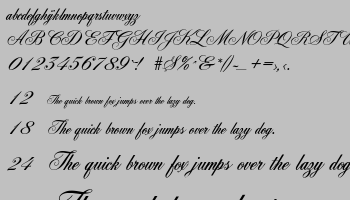 abcdefghijklmnopqrstuvwxyz
ABCDEFGHIJKLMNOPQRSTU
0123456789
12 The quick brown fox jumps over the lazy dog.
18 The quick brown fox jumps over the lazy dog.
24 The quick brown fox jumps over the lazy dog